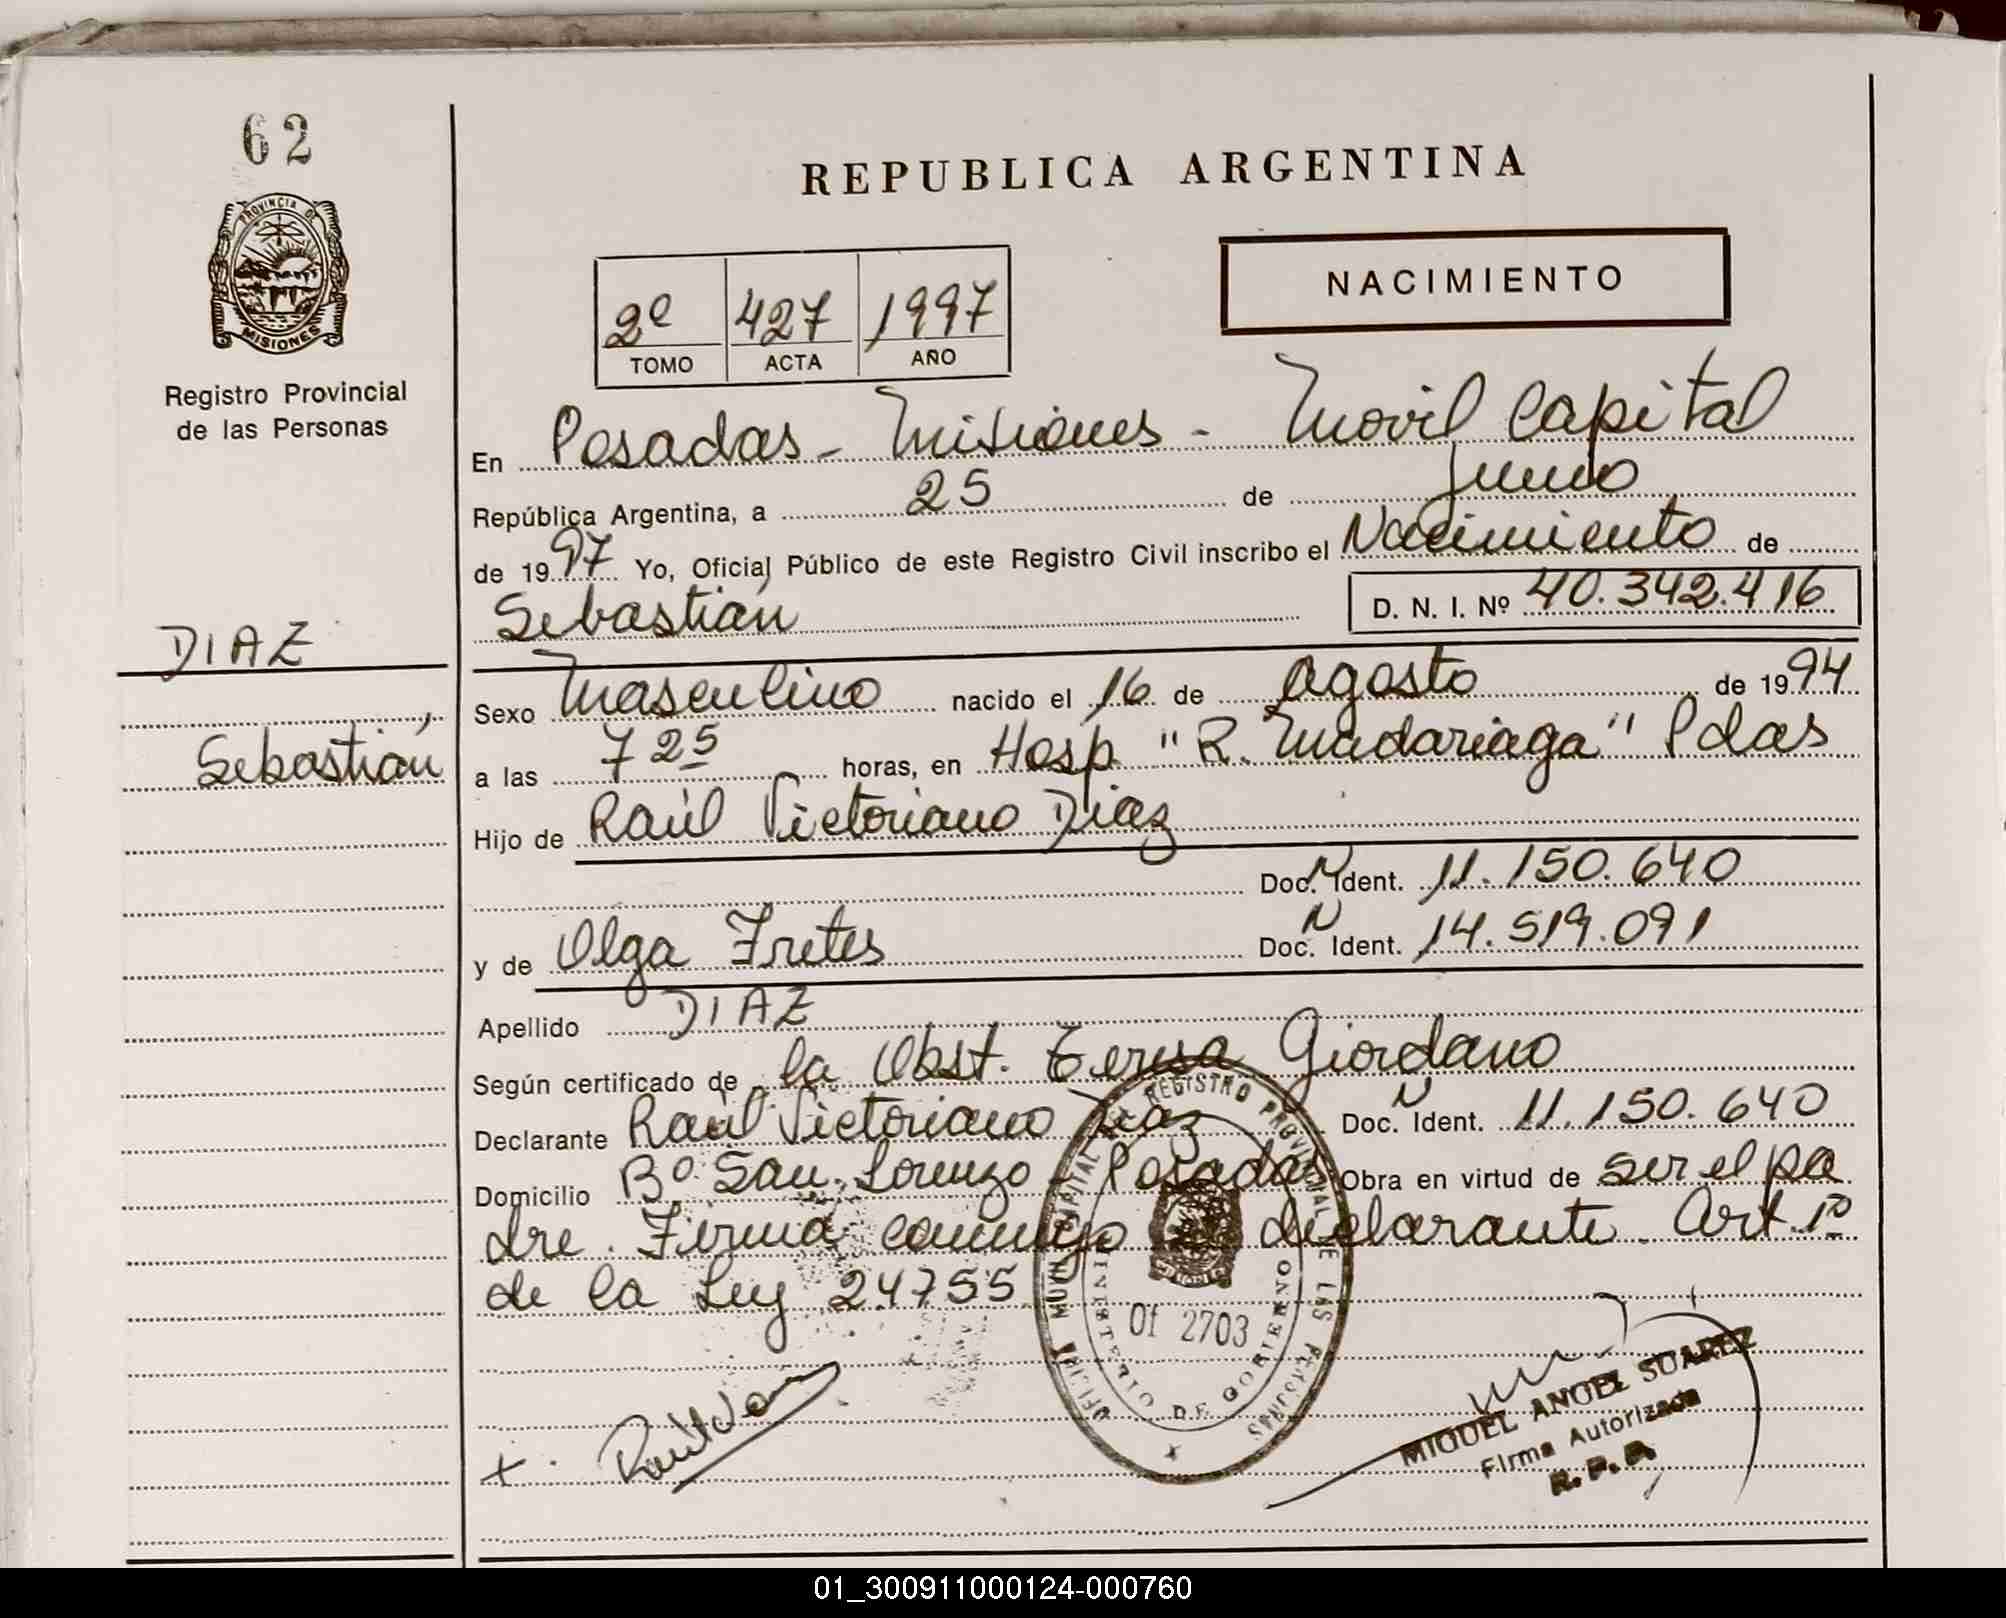 62
REPUBLICA ARGENTINA
PROVINCIA DE
MISIONES
NACIMIENTO
2º 427 1997
TOMO ACTA AÑO
Registro Provincial
de las Personas
En Posadas - Misiones - Movil Capital
República Argentina, a 25 de Junio
de 1997 Yo, Oficial Público de este Registro Civil inscribo el Nacimiento de
Sebastián D. N. I. Nº 40.342.416
DIAZ
Sebastián
Sexo Masculino nacido el 16 de agosto de 1994
a las 7 25 horas, en Hosp. "R. Madariaga" Pdas
Hijo de Raúl Victoriano Diaz
Doc. N Ident. 11.150.640
y de Olga Fretes Doc. N Ident. 14.519.091
Apellido DIAZ
Según certificado de la Obst. Teresa Giordano
Declarante Raúl Victoriano Diaz Doc. N Ident. 11.150.640
Domicilio Bº San Lorenzo - Posadas Obra en virtud de ser el pa
dre. Firma conmigo el declarante. Art. 1º
de la Ley 24755
REGISTRO PROVINCIAL DE LAS PERSONAS
MINISTERIO DE GOBIERNO
Of 2703
MIGUEL ANGEL SUAREZ
Firma Autorizada
R.P.A
01_300911000124-000760